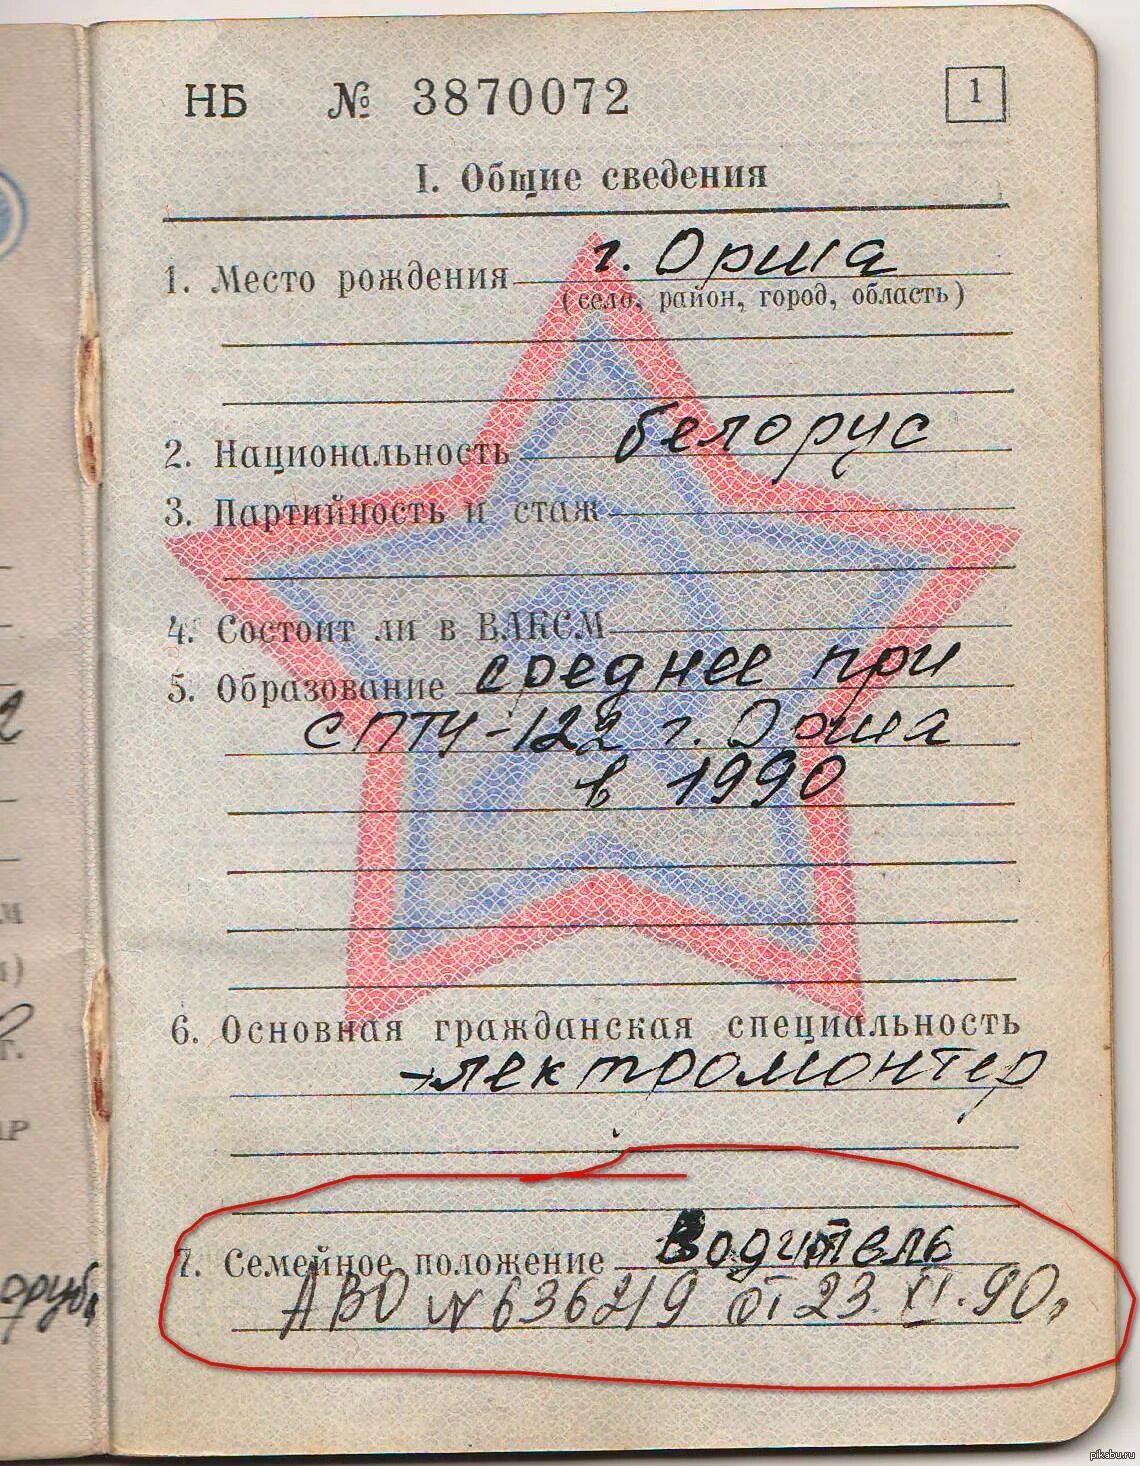 НБ № 3870072
1
I. Общие сведения
1. Место рождения г. Орша
(село, район, город, область)
2. Национальность белорус
3. Партийность и стаж
4. Состоит ли в ВЛКСМ
5. Образование среднее при
СПТУ-122 г. Орша
в 1990
6. Основная гражданская специальность
электромонтер
7. Семейное положение Водитель
АВО № 636219 от 23.XI.90г
pikabu.ru